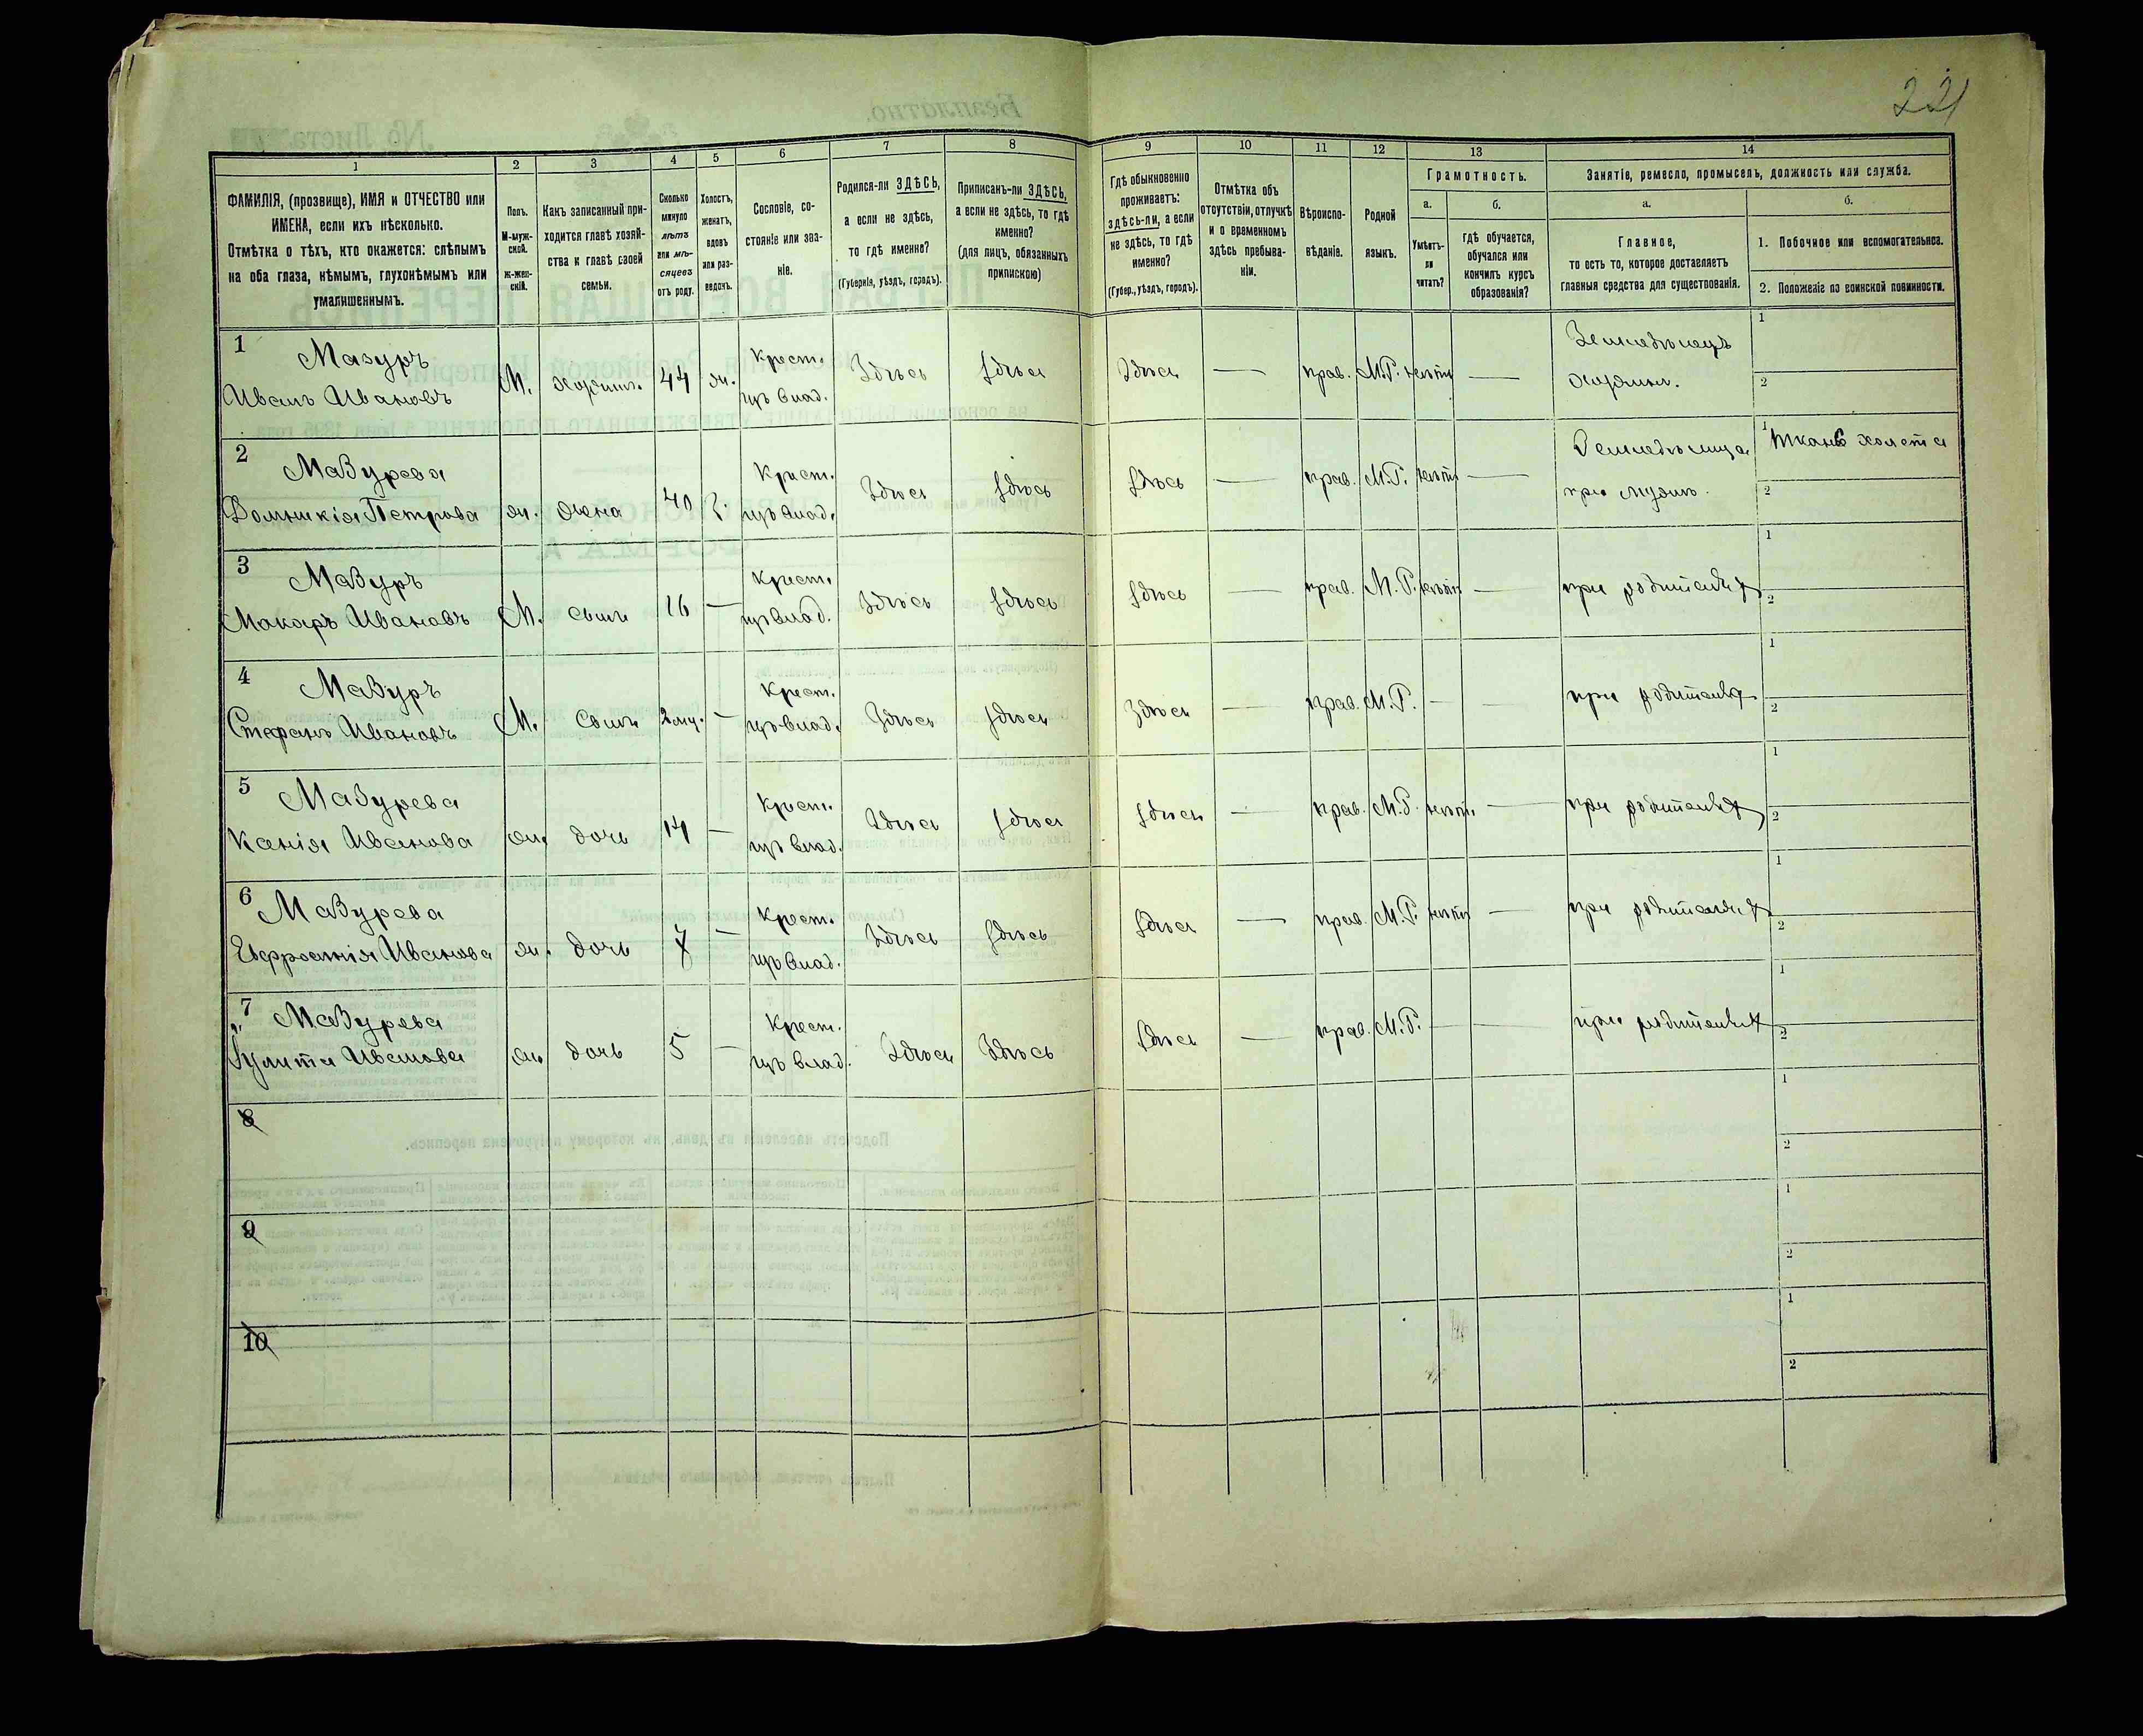 221
1
2
3
4
5
6
7
8
9
10
11
12
13
14
ФАМИЛІЯ, (прозвище), ИМЯ и ОТЧЕСТВО или
ИМЕНА, если ихъ нѣсколько.
Отмѣтка о тѣхъ, кто окажется: слѣпымъ
на оба глаза, нѣмымъ, глухонѣмымъ или
умалишеннымъ.
Полъ.
М-муж-
ской.
ж-жен-
скій.
Какъ записанный при-
ходится главѣ хозяй-
ства и главѣ своей
семьи.
Сколько
минуло
лѣтъ
или мѣ-
сяцевъ
отъ роду.
Холостъ,
женатъ,
вдовъ
или раз-
веденъ.
Сословіе, со-
стояніе или зва-
ніе.
Родился-ли ЗДѢСЬ,
а если не здѣсь,
то гдѣ именно?
(Губернія, уѣздъ, городъ).
Приписанъ-ли ЗДѢСЬ,
а если не здѣсь, то гдѣ
именно?
(для лицъ, обязанныхъ
припискою)
Гдѣ обыкновенно
проживаетъ:
здѣсь-ли, а если
не здѣсь, то гдѣ
именно?
(Губер., уѣздъ, городъ).
Отмѣтка объ
отсутствіи, отлучкѣ
и о временномъ
здѣсь пребыва-
ніи.
Вѣроиспо-
вѣданіе.
Родной
языкъ.
Грамотность.
а.
Умѣетъ-
ли
читать?
б.
гдѣ обучается,
обучался или
кончилъ курсъ
образованія?
Занятіе, ремесло, промыселъ, должность или служба.
а.
Главное,
то есть то, которое доставляетъ
главныя средства для существованія.
б.
1. Побочное или вспомогательное.
2. Положеніе по воинской повинности.
1 Мазуръ
Иванъ Ивановъ М. хозяинъ 44 ж. Крест. изъ влад. Здѣсь Здѣсь Здѣсь — прав. М.Р. нѣтъ — Земледѣлецъ хозяинъ. 1 2
2 Мазурева
Домникія Петрова ж. жена 40 З. Крест. изъ влад. Здѣсь Здѣсь Здѣсь — прав. М.Р. нѣтъ — Земледѣлица при мужѣ. 1 Тканье холста 2
3 Мазуръ
Макаръ Ивановъ М. сынъ 16 — Крест. изъ влад. Здѣсь Здѣсь Здѣсь — прав. М.Р. нѣтъ — при родителяхъ 1 2
4 Мазуръ
Стефанъ Ивановъ М. сынъ — Крест. изъ влад. Здѣсь Здѣсь Здѣсь — прав. М.Р. — — при родителяхъ 1 2
5 Мазурева
Ксенія Иванова ж. дочь 14 — Крест. изъ влад. Здѣсь Здѣсь Здѣсь — прав. М.Р. нѣтъ — при родителяхъ 1 2
6 Мазурева
Евфросинія Иванова ж. дочь — Крест. изъ влад. Здѣсь Здѣсь Здѣсь — прав. М.Р. нѣтъ — при родителяхъ 1 2
7 Мазурева
Іулита Иванова ж. дочь 5 — Крест. изъ влад. Здѣсь Здѣсь Здѣсь — прав. М.Р. — — при родителяхъ 1 2
8 1 2
9 1 2
10 1 2